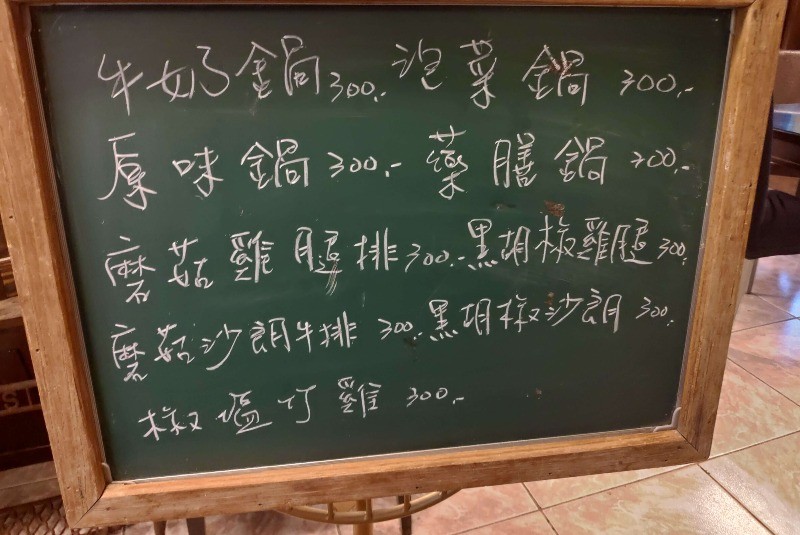 牛奶鍋300.- 泡菜鍋 300.-
原味鍋300.- 藥膳鍋 300.-
磨菇雞腿排300.- 黑胡椒雞腿300.
磨菇沙朗牛排 300. 黑胡椒沙朗 300.
椒塩汀雞 300.-